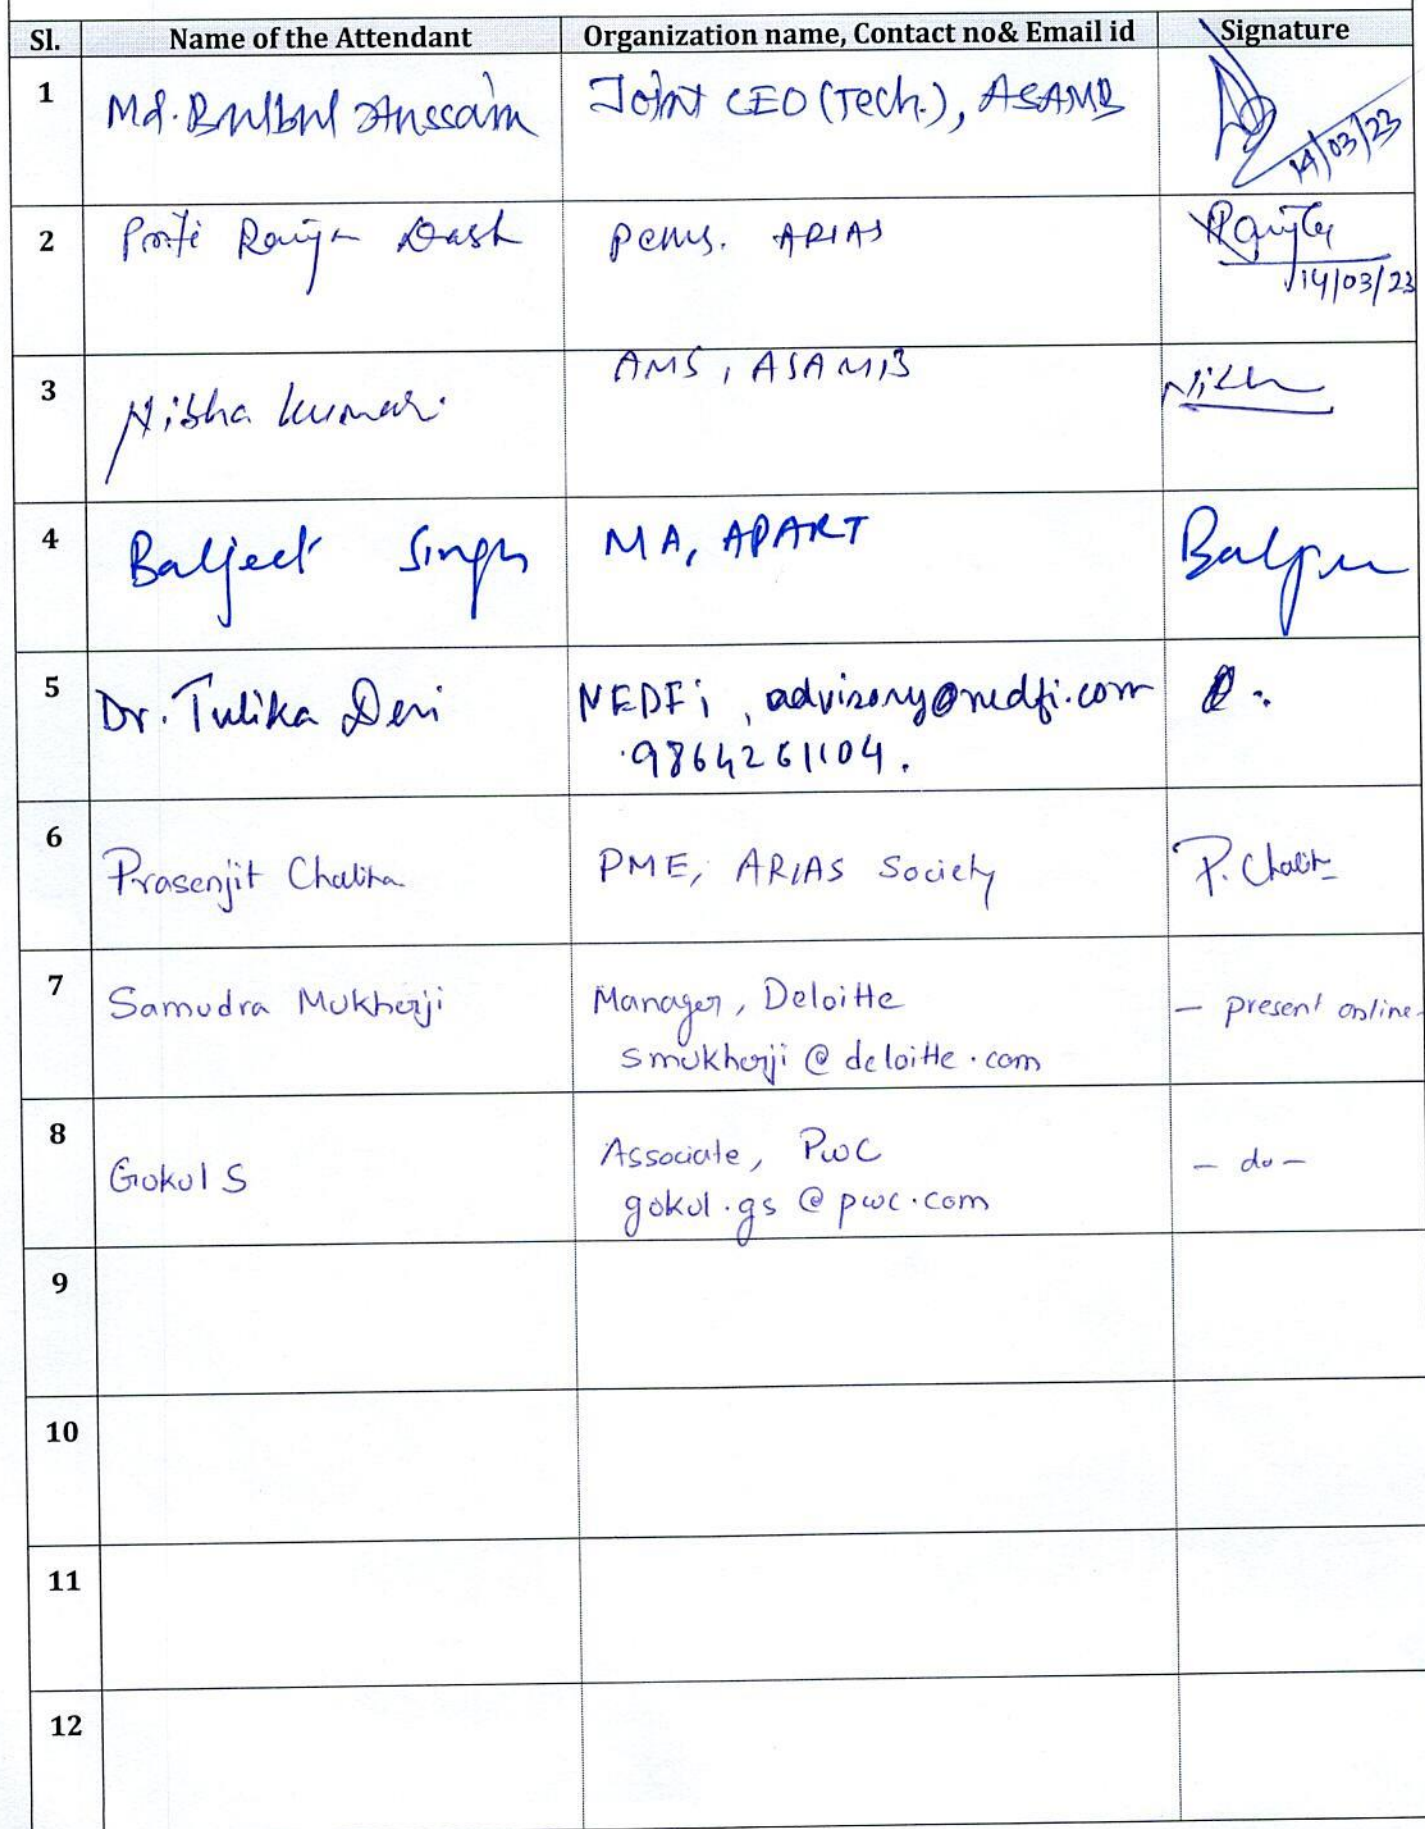 Sl. Name of the Attendant Organization name, Contact no& Email id Signature
1 Md. Bulbul Hussain Joint CEO (Tech.), ASAMB
14/03/23
2 Ranjan Dash PCMS. ARIAS
14/03/23
3 Nibha Kumar. AMS, ASAMB
4 Baljeet Singh MA, APART
5 Dr. Tulika Devi NEDFi, advisory@nedfi.com
9864261104.
6 Prasenjit Chaliha PME, ARIAS Society P. Chalih
7 Samudra Mukherji Manager, Deloitte – present online –
smukherji@deloitte.com
8 Gokul S Associate, PwC – do –
gokul.gs@pwc.com
9
10
11
12